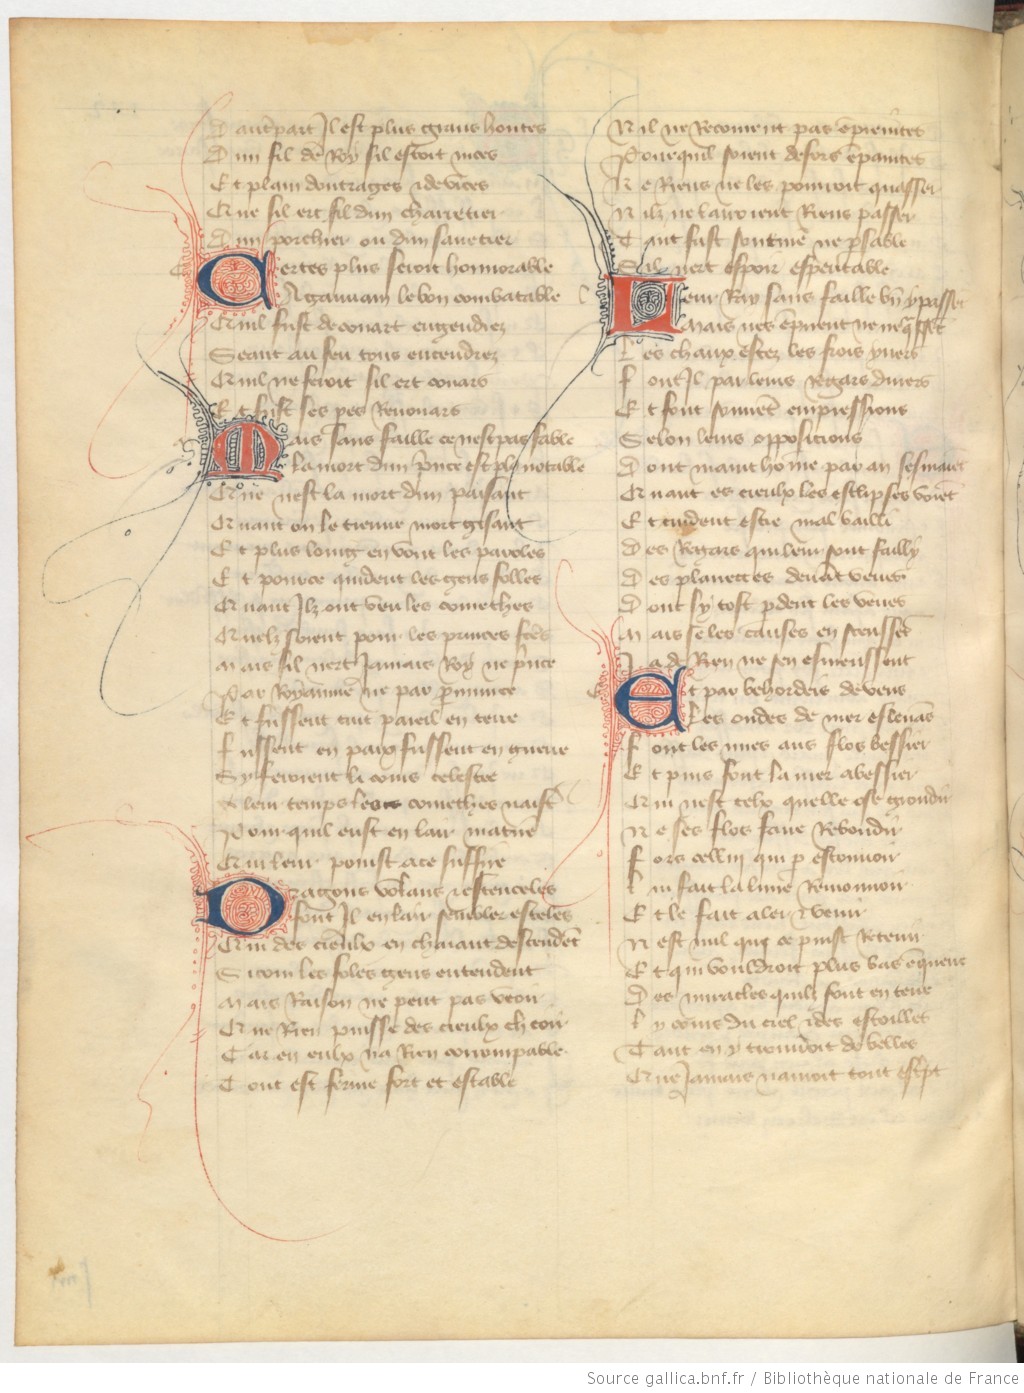 D autrpart Jl est plus grans hontes
D un fil de Roy sil estoit nices
E t plain doutrages & de vices
Que sil ert fil dun charretier
D un porchier ou dun savetier
Certes plus seroit honnorable
A gauuain le bon combatable
Quil fust de couart engendrez
S eant au feu tous encendrez
Quil ne seroit sil ert couars
E t fust ses pes Renouars
Mais sans faille ce nest pas fable
La mort dun pñce est pl9 notable
Que nest la mort dun paisant
Quant on le treuue mort gisant
E t plus loing en vont les paroles
E t pource quident les gens folles
Quant Jlz ont veu les comethes
Quelz soient pour les princes fctēs
M ais sil nert Jamais Roy ne pñce
P ar Royaume ne par puince
E t fussent tuit pareil en terre
F ussent en paix fussent en guerre
Sy feroient li cours celestre
leur temps les comethes naistr
P our quil eust en lair matire
Qui leur poinst a ce suffire
Dragons volans & estenceles
font Jl en lair sembler esteles
Qui des cieulx en chaiant descendēt
S i com les foles gens entendent
M ais Raison ne peut pas veoir
Que Rien puisse des cieulx cheoir
C ar en eulx na Rien corrompable
T out est ferme fort et estable
N il ne Recoiuent pas ēpreintes
P ourquil soient defors ēpaintes
N e Riens ne les pourroit quasser
N ilz ne lairoient Riens passer
T ant fust soutiue ne psable
S il nert espoir esperitable
Leur Ray sans faille bñ y passēt
Mais nes ēpirent ne ne qssēt
L es chaux estez les frois yuers
F ont Jl par leurs Regars diuers
E t font souuēt empressions
S elon leurs oppositions
D ont maint homme par an
Quant es cieulx les esclipses voiēt
E t cuident estre mal bailli
D es Regars qui leur sont failly
D es planettes deuāt veues
D ont sy tost pdent les veues
M ais se les causes en sceussēt
J a de Rien ne sen esmeussent
Et par behordeis de vens
Les ondes de mer esleuās
F ont les unes aus flos bessier
E t puis font la mer abessier
Qui nest telx quelle ose grondir
N e ses flos faire Rebondir
F ors cellui qui p estouuoir
L ui fait la lune Remouuoir
E t le fait aler & venir
N est nul qui ce puist Retenir
E t qui vouldroit plus bas enquerre
D es miracles quilz font en terre
L y cours du ciel & des estoilles
T ant en y trouuoit de belles
Que Jamais nauroit tout escrpt